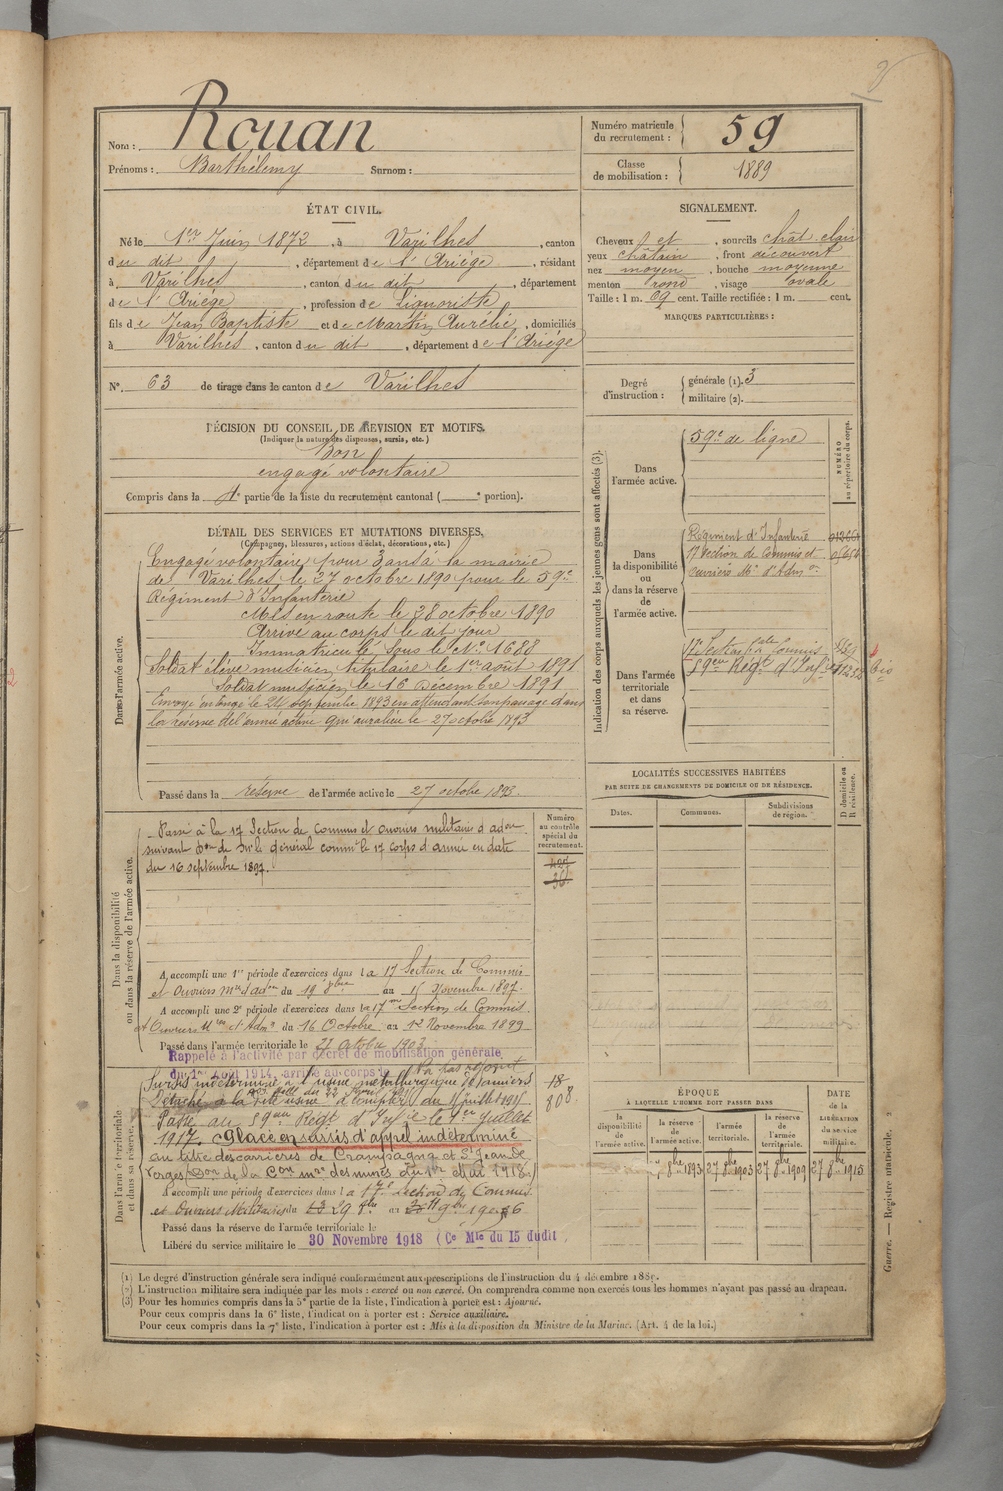 Rouan
Nom :
Prénoms : Barthélemy Surnom :
Numéro matricule
du recrutement : 59
Classe
de mobilisation : 1889
ÉTAT CIVIL.
Né le 1er Juin 1872, à Varilhes, canton
du dit, département de l'Ariège, résidant
à Varilhes, canton du dit, département
de l'Ariège, profession de Liquoriste
fils de Jean Baptiste et de Martin Aurélie, domiciliés
à Varilhes, canton du dit, département de l'Ariège
N°. 63 de tirage dans le canton de Varilhes
SIGNALEMENT.
Cheveux et, sourcils chât clair
yeux châtain, front découvert
nez moyen, bouche moyenne
menton rond, visage ovale
Taille : 1 m. 69 cent. Taille rectifiée : 1 m. cent.
MARQUES PARTICULIÈRES :
Degré
d'instruction :
générale (1). 3
militaire (2).
DÉCISION DU CONSEIL DE REVISION ET MOTIFS.
(Indiquer la nature des dispenses, sursis, etc.)
Bon
engagé volontaire
Compris dans la 4e partie de la liste du recrutement cantonal ( e portion).
DÉTAIL DES SERVICES ET MUTATIONS DIVERSES.
(Campagnes, blessures, actions d'éclat, décorations, etc.)
Dans l'armée active.
Engagé volontaire pour 3 ans à la mairie
de Varilhes le 27 octobre 1890 pour le 59e
Régiment d'Infanterie
Mis en route le 28 octobre 1890
Arrivé au corps le dit jour
Immatriculé sous le N° 1688
Soldat élève musicien titulaire le 1er août 1891
Soldat musicien le 16 Décembre 1891
Envoyé en congé le 24 septembre 1893 en attendant son passage dans
la réserve de l'armée active qui aura lieu le 27 octobre 1893
Passé dans la réserve de l'armée active le 27 octobre 1893.
Indication des corps auxquels les jeunes gens sont affectés (3).
NUMÉRO
au répertoire du corps.
Dans
l'armée active.
59e de ligne
Dans
la disponibilité
ou
dans la réserve
de
l'armée active.
Régiment d'Infanterie
17 Section de Commis et
ouvriers Mres d'Admon
Dans l'armée
territoriale
et dans
sa réserve.
59eme Régt d'Infie
bis
LOCALITÉS SUCCESSIVES HABITÉES
PAR SUITE DE CHANGEMENTS DE DOMICILE OU DE RÉSIDENCE.
Dates.
Communes.
Subdivisions
de région.
D domicile ou
R résidence.
Dans la disponibilité
ou dans la réserve de l'armée active.
Numéro
au contrôle
spécial du
recrutement.
Passé à la 17 Section de Commis et ouvriers militaires d'adon
suivant Don de Mr le général commt le 17 corps d'armée en date
du 16 septembre 1897.
36
A accompli une 1re période d'exercices dans la 17 Section de Commis
et Ouvriers Mres d'adon du 19 8bre au 15 Novembre 1897.
A accompli une 2e période d'exercices dans la 17me Section de Commis
et Ouvriers Mres d'Admn du 16 Octobre au 12 Novembre 1899
Passé dans l'armée territoriale le 27 Octobre 1903
Rappelé à l'activité par décret de mobilisation générale
du 1er Août 1914, arrivé au corps le N'a pas rejoint
Dans l'armée territoriale
et dans sa réserve.
Sursis indéterminé à l'usine métallurgique de Pamiers
Détaché à la dite usine à compter du juillet 1915
Passé au 59eme Régt d'Infie le 1er Juillet
1917. Placé en sursis d'appel indéterminé
au titre des carrières de Crampagna et St Jean de
Verges Don de la Con mre des mines du 1er Mai 1918
A accompli une période d'exercices dans la 17e Section de Commis
et Ouvriers Militaires du 29 8bre au 11 9bre 1906
18
808
Passé dans la réserve de l'armée territoriale le
Libéré du service militaire le 30 Novembre 1918 (Ce Mle du 15 dudit)
ÉPOQUE
À LAQUELLE L'HOMME DOIT PASSER DANS
DATE
de la
LIBÉRATION
du service
militaire.
la
disponibilité
de
l'armée active.
la
réserve de
l'armée active.
l'armée
territoriale.
la réserve
de
l'armée
territoriale.
27 8bre 1893
27 8bre 1903
27 8bre 1909
27 8bre 1915
Guerre. — Registre matricule. 2
(1) Le degré d'instruction générale sera indiqué conformément aux prescriptions de l'instruction du 4 décembre 1889.
(2) L'instruction militaire sera indiquée par les mots : exercé ou non exercé. On comprendra comme non exercés tous les hommes n'ayant pas passé au drapeau.
(3) Pour les hommes compris dans la 5e partie de la liste, l'indication à porter est : Ajourné.
Pour ceux compris dans la 6e liste, l'indication à porter est : Service auxiliaire.
Pour ceux compris dans la 7e liste, l'indication à porter est : Mis à la disposition du Ministre de la Marine. (Art. 4 de la loi.)